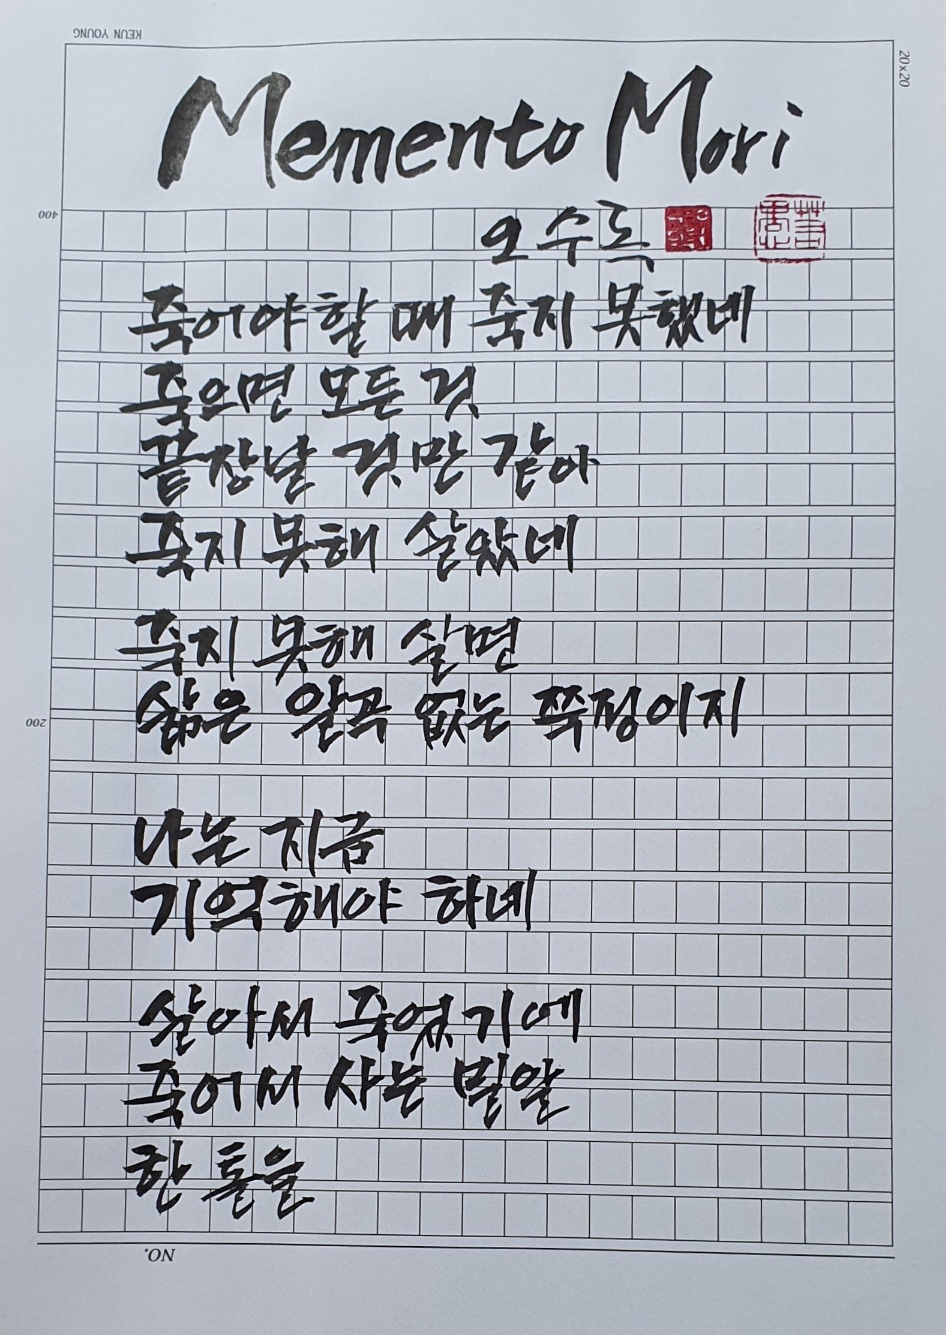 KEUN YOUNG
20x20
Memento Mori
400
오수록
죽어야할 때 죽지 못했네
죽으면 모든 것
끝장날 것만 같아
죽지 못해 살았네
죽지 못해 살면
200
삶은 알곡 없는 쭉정이지
나는 지금
기억해야 하네
살아서 죽었기에
죽어서 사는 밀알
한 톨을
NO.